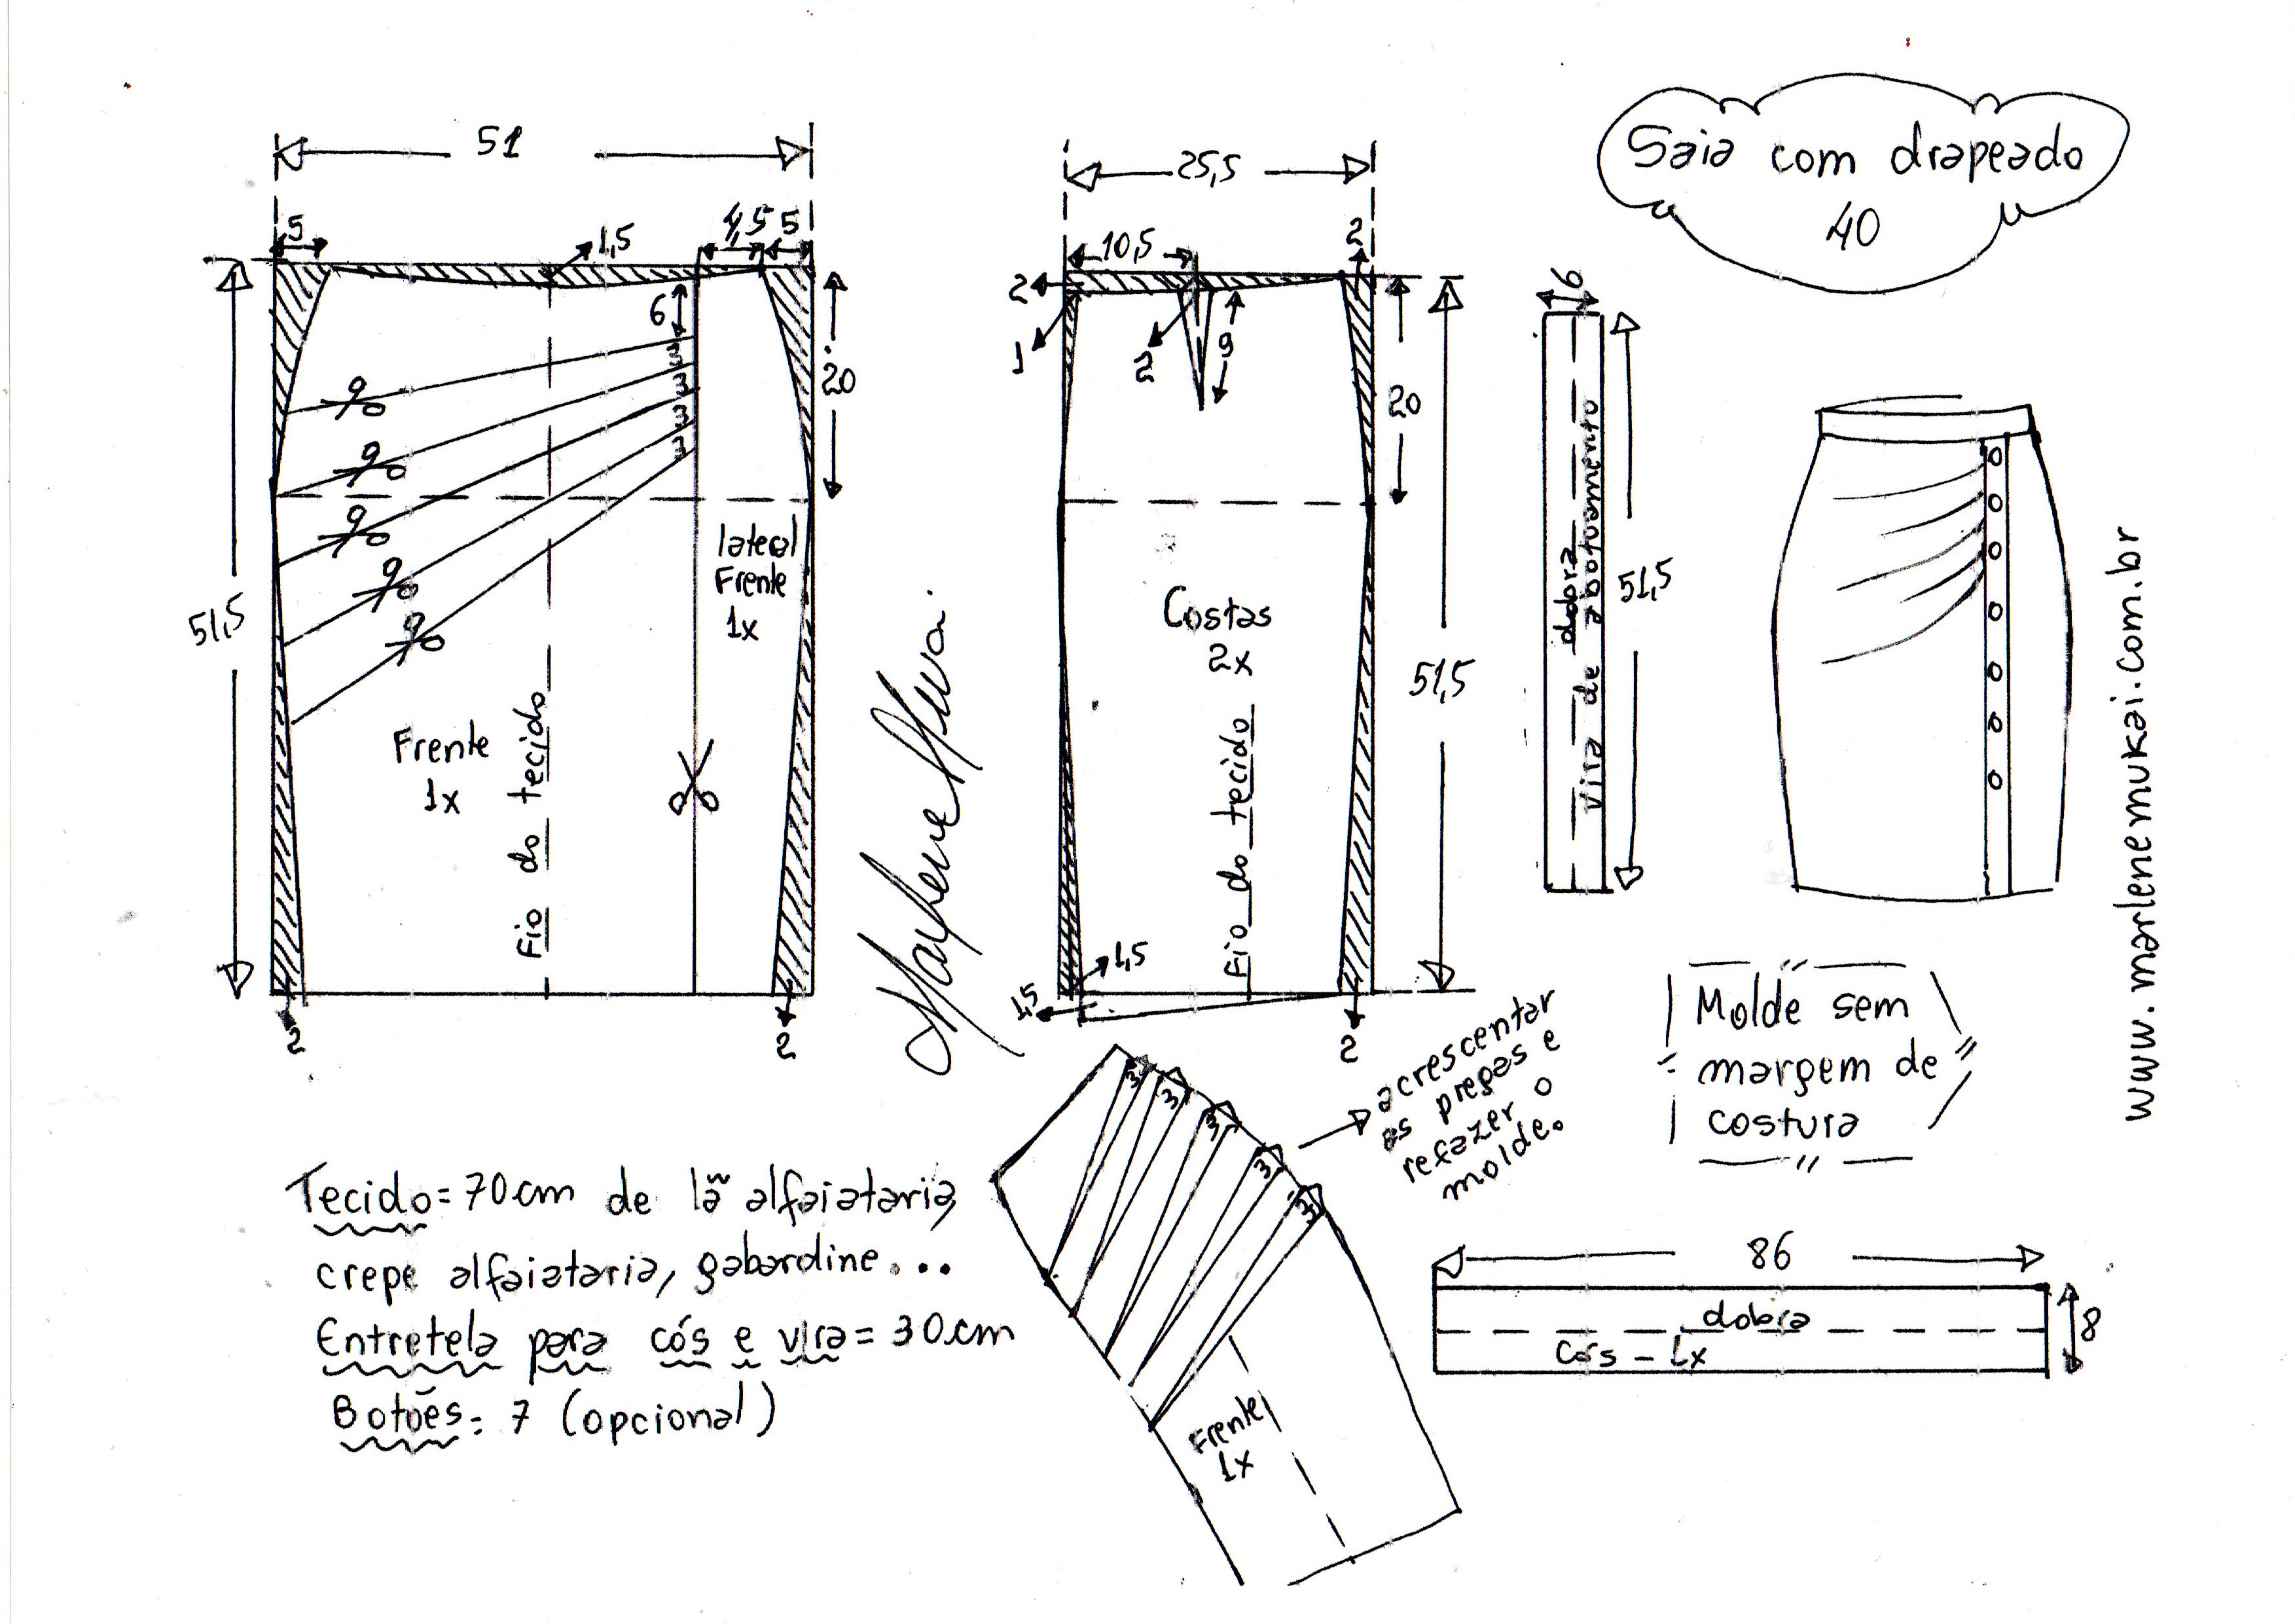 Saia com drapeado
40
51
5
1,5
4,5
5
6
3
3
3
3
20
51,5
lateral
Frente
1x
Frente
1x
Fio do tecido
2
2
25,5
10,5
2
2
1
2
9
20
Costas
2x
51,5
Fio do tecido
1,5
1,5
2
6
dobra
vira de abotoamento
51,5
www.marlenemukai.com.br
Molde sem
margem de
costura
acrescentar
as pregas e
refazer o
molde.
3
3
3
3
3
Frente
1x
Tecido=70cm de lã alfaiataria,
crepe alfaiataria, gabardine...
Entretela para cós e vira=30cm
Botões: 7 (opcional)
86
dobra
Cós - 1x
8